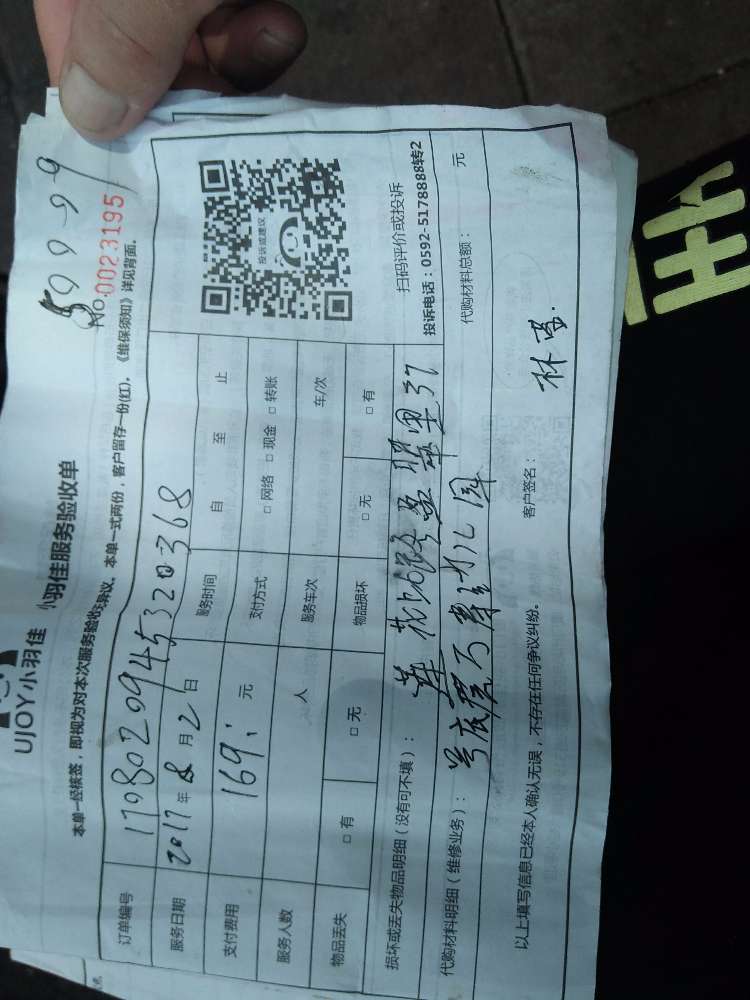 599-99
UJOY小羽佳
小羽佳服务验收单
No.0023195
本单一经核签，即视为对本次服务验收无异议。本单一式两份，客户留存一份(红)。《维保须知》详见背面。
订单编号 1708020945320368
服务日期 2017年8月2日 服务时间 自 至 止
支付费用 169. 元 支付方式 □网络 □现金 □转账
服务人数 人 服务车次 车/次
物品丢失 □有 □无 物品损坏 □无 □有
投诉或建议
扫码评价或投诉
投诉电话：0592-5178888转2
损坏或丢失物品明细（没有可不填）： 莲花 路 里37
代购材料明细（维修业务）： 号底 幼儿园
代购材料总额： 元
以上填写信息已经本人确认无误，不存在任何争议纠纷。
客户签名： 林